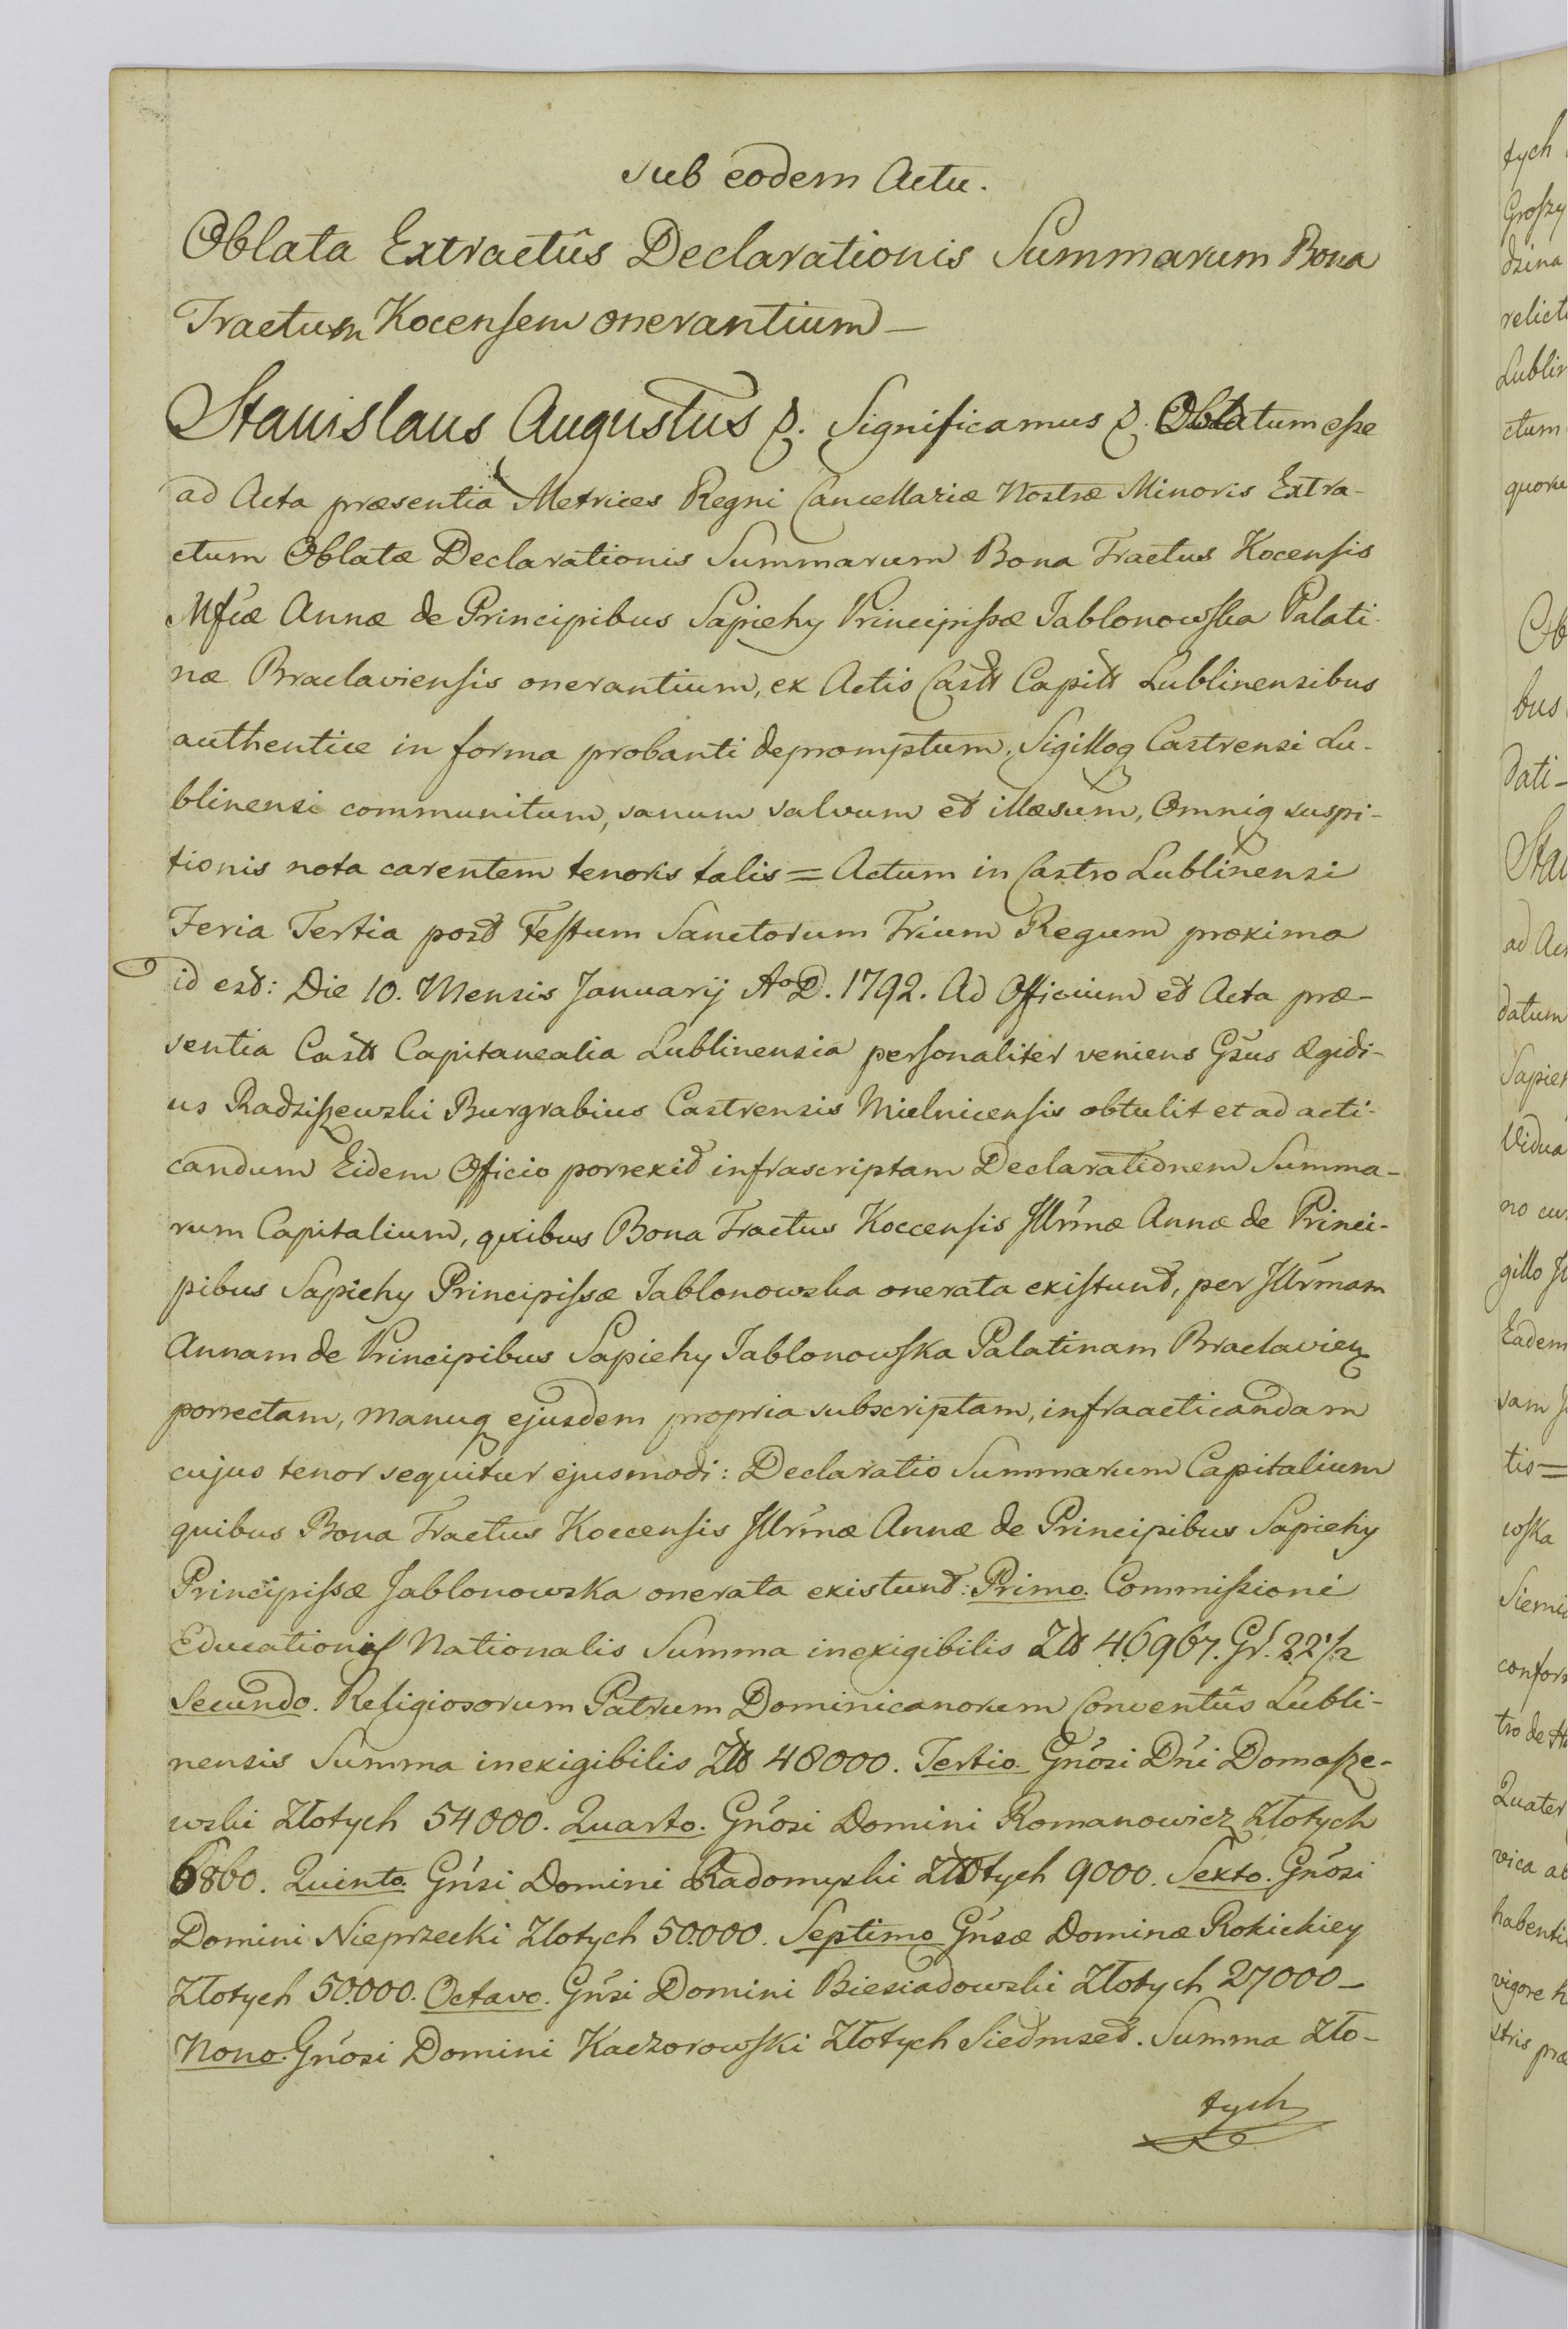 sub eodem Actu.
Oblata Extractûs Declarationis Summarum Bona
Tractum Kocensem onerantium –
Stanislaus Augustus &. Significamus &. Oblatum esse
ad Acta præsentia Metrices Regni Cancellariæ Nostræ Minoris Extra-
ctum Oblatæ Declarationis Summarum Bona Tractus Kocensis
Mfcæ Annæ de Principibus Sapiehy Principissæ Jablonowska Palati-
næ Braclaviensis onerantium, ex Actis Castt Capitt Lublinensibus
authentice in forma probanti depromptum, Sigilloq Castrensi Lu-
blinensi communitum, sanum salvum et illæsum, Omniq suspi-
tionis nota carentem tenoris talis = Actum in Castro Lublinensi
Feria Tertia post Festum Sanctorum Trium Regum proxima
id est: Die 10. Mensis Januarij Ao D. 1792. Ad Officium et Acta præ-
sentia Castt Capitanealia Lublinensia personaliter veniens Gsus Ægidi-
us Radziszewski Burgrabius Castrensis Mielnicensis obtulit et ad acti-
candum Eidem Officio porrexit infrascriptam Declarationem Summa-
rum Capitalium, quibus Bona Tractus Koccensis Illrmæ Annæ de Princi-
pibus Sapiehy Principissæ Jablonowska onerata existunt, per Illrmam
Annam de Principibus Sapiehy Jablonowska Palatinam Braclavien
porrectam, manuq ejusdem propria subscriptam, infraacticandam
cujus tenor sequitur ejusmodi: Declaratio Summarum Capitalium
quibus Bona Tractus Koccensis Illrmæ Annæ de Principibus Sapiehy
Principissæ Jablonowska onerata existunt: Primo. Commissioni
Educationis Nationalis Summa inexigibilis Ztt 46967. Gr. 22 1/2
Secundo. Religiosorum Patrum Dominicanorum Conventûs Lubli-
nensis Summa inexigibilis Ztt 48000. Tertio. Gnosi Dni Domasze-
wski Złotych 54000. Quarto. Gnosi Domini Romanowicz Złotych
6860. Quinto. Gnsi Domini Radomyski Złotych 9000. Sexto. Gnosi
Domini Nieprzecki Złotych 50.000. Septimo Gnsæ Dominæ Rokickiey
Złotych 50.000. Octavo. Gnsi Domini Biesiadowski Złotych 27000 –
Nono. Gnosi Domini Kaczorowski Złotych Siedmset. Summa Zło-
tych
tych
Groszy
dzina
relict
Lublin
ctum
bus
dati-
ad Ac
datum
Sapie
Vidua
no cu
gillo
Eadem
sam
tis =
wska
Siemi
confor
tro de
Quater
vica
habenti
vigore
stris præ